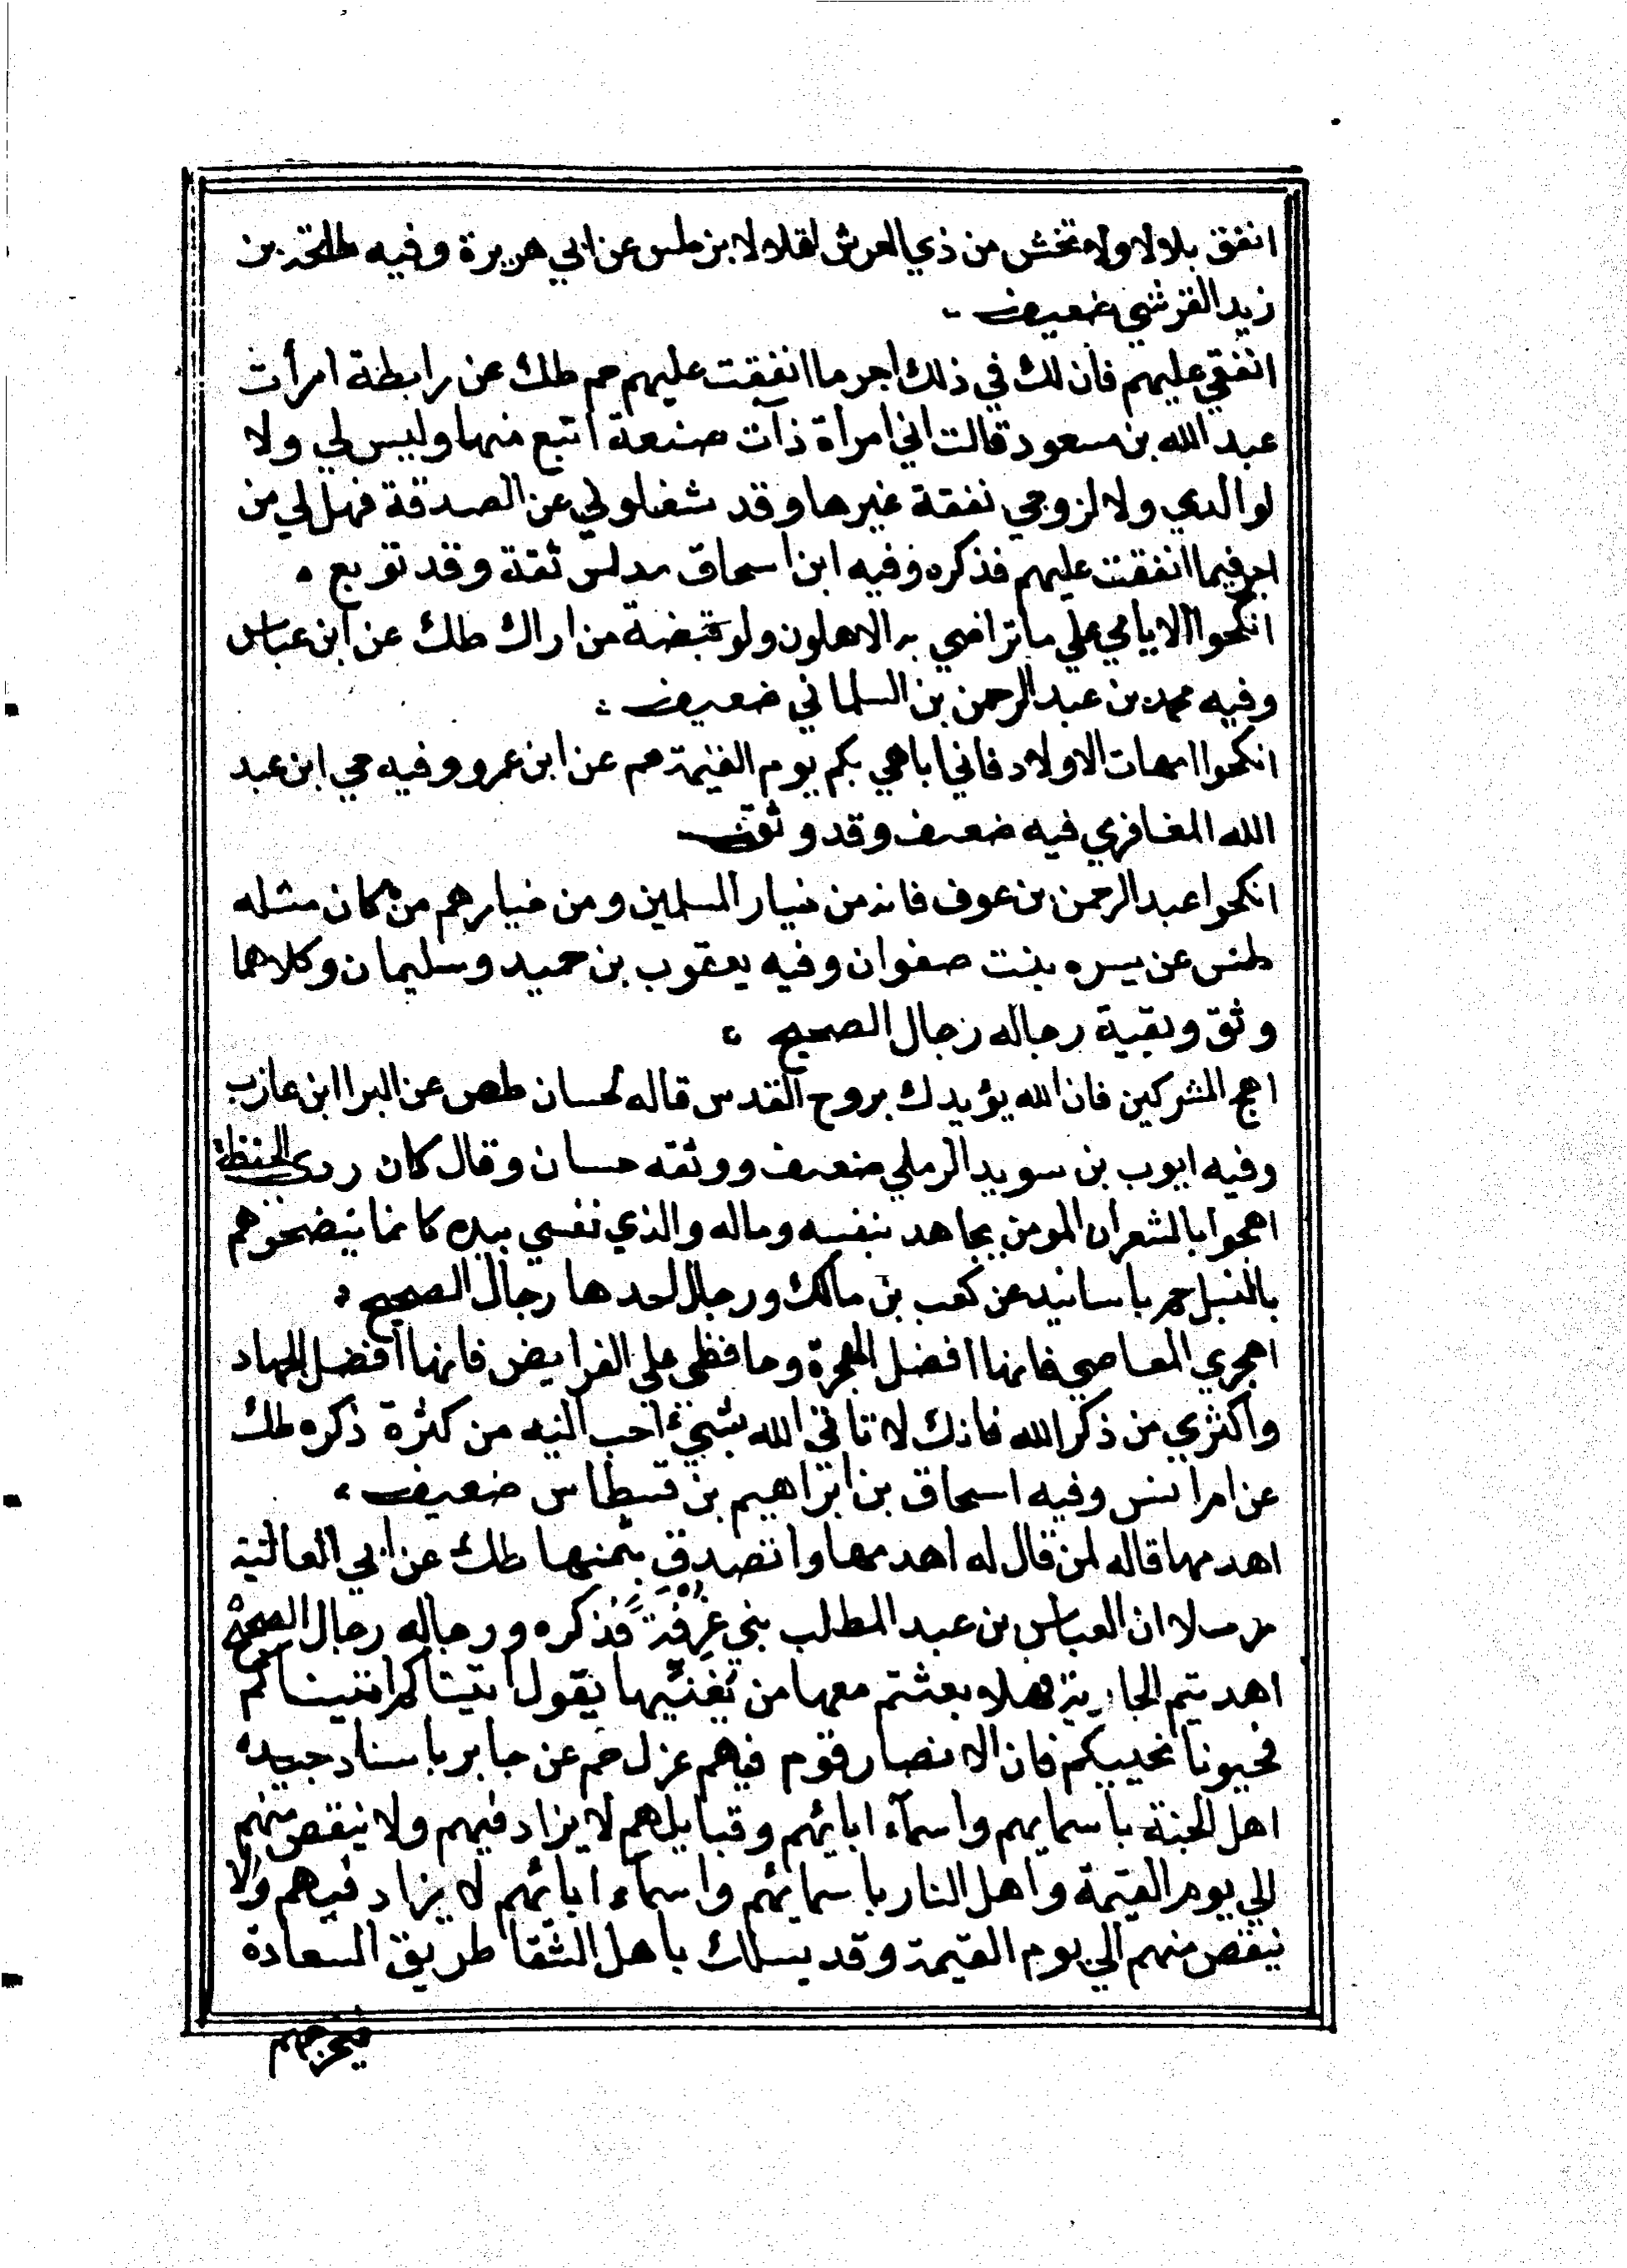 انفق بلالا ولا تخش من ذي العرش اقلالا بز طس عن ابي هريرة وفيه طلحة بن
زيد القرشي ضعيف
انفقي عليهم فان لك في ذلك اجر ما انفقت عليهم حم طك عن رايطة امرأت
عبد الله بن مسعود قالت اني امراة ذآت صنعة ابيع منها وليس لي ولا
لوالدي ولا لزوجي نفقة غيرها وقد شغلولي عن الصدقة فهل لي من
اجر فيما انفقت عليهم فذكره وفيه ابن اسحاق مدلس ثقة وقد توبع
انكحوا الايامي علي ما تراضي به الاهلون ولو قبضة من اراك طك عن ابن عباس
وفيه محمد بن عبد الرحمن بن السلماني ضعيف
انكحوا امهات الاولاد فاني اباهي بكم يوم القيمة حم عن ابن عمرو وفيه حي ابن عبد
الله المغافري فيه ضعف وقد وثق
انكحوا عبد الرحمن بن عوف فانه من خيار المسلمين ومن خيارهم من كان مثله
طس عن بسره بنت صفوان وفيه يعقوب بن حميد وسليمان وكلاهما
وثق وبقية رجاله رجال الصحيح
اهج المشركين فان الله يؤيدك بروح القدس قاله لحسان طص عن البرا ابن عازب
وفيه ايوب بن سويد الرملي ضعف ووثقه حسان وقال كان ردى الحفظ
اهجوا بالشعر ان المومن يجاهد بنفسه وماله والذي نفسي بيده كانما ينضحوهم
بالنبل حم باسانيد عن كعب بن مالك ورجال احدها رجال الصحيح
اهجري المعاصي فانها افضل الهجرة وحافظي علي الفرايض فانها افضل الجهاد
واكثري من ذكر الله فانك لا تاتي الله بشيئ احب اليه من كثرة ذكره طك
عن ام انس وفيه اسحاق بن ابراهيم بن قسطاس ضعيف
اهدمها قاله لمن قال له اهدمها واتصدق بثمنها طك عن ابي العالية
مرسلا ان العباس بن عبد المطلب بني غُرْفَةً فذكره ورجاله رجال الصحيح
اهديتم الجارية فهلا بعثتم معها من يُغَنِّيها يقول اتيناكم اتيناكم
فحيونا نحييكم فان الانصار قوم فيهم غزل حم عن جابر باسناد جيد
اهل الجنة باسمايهم واسمآء ابائهم وقبايلهم لا يزاد فيهم ولا ينقص منهم
الي يوم القيمة واهل النار باسمائهم واسمآء ابائهم لا يزاد فيهم ولا
ينقص منهم الي يوم القيمة وقد يسلك باهل الشقا طريق السعادة
فيخرجهم